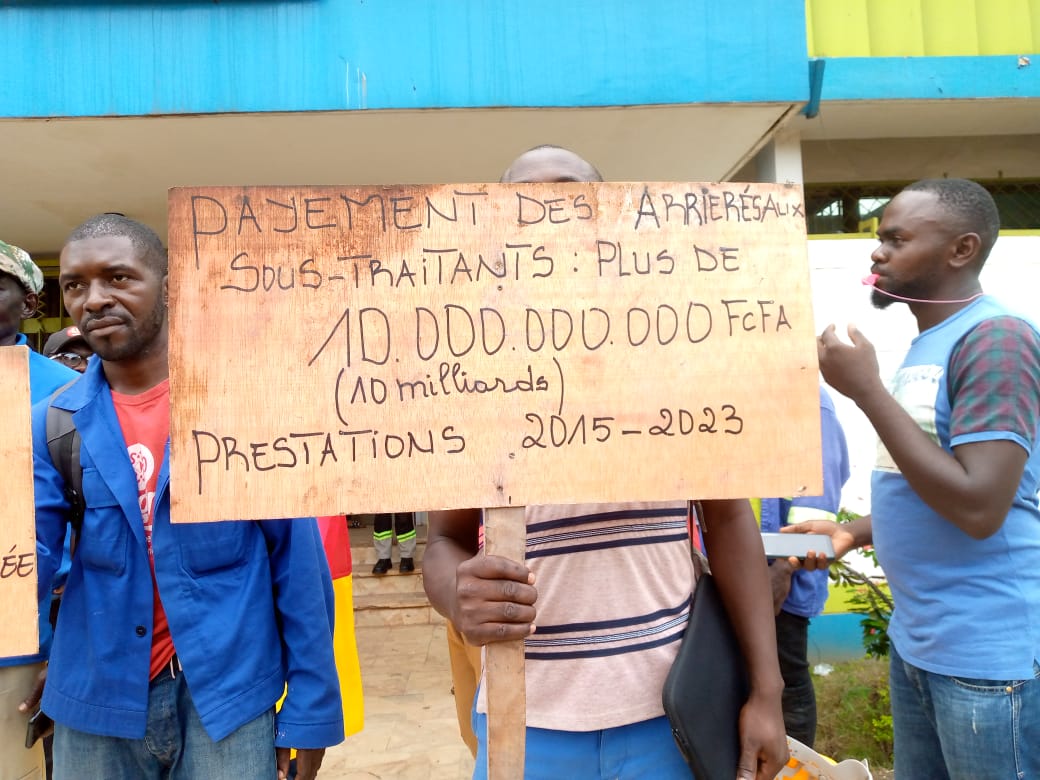 PAYEMENT DES ARRIERÉS AUX
SOUS-TRAITANTS : PLUS DE
10.000.000.000 FCFA
(10 milliards)
PRESTATIONS 2015-2023
ÉE